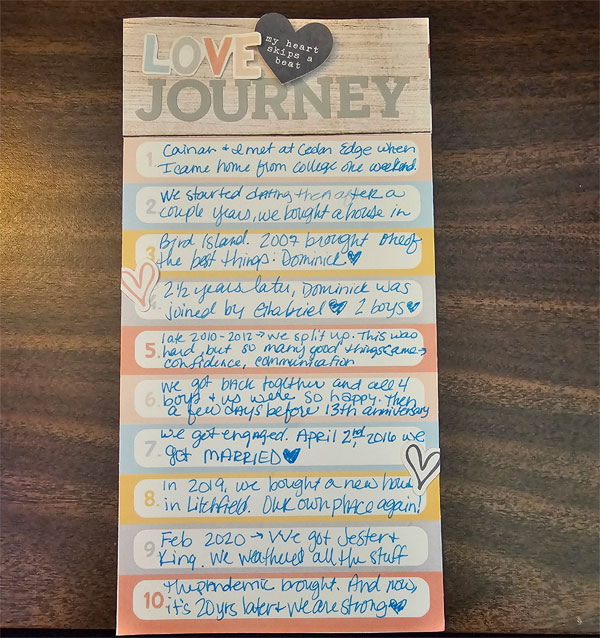 LOVE
my heart
skips a
beat
JOURNEY
1. Cainan + I met at Cedar Edge when
I came home from college one weekend.
2. We started dating then after a
couple years, we bought a house in
3. Bird Island. 2007 brought one of
the best things: Dominick ♡
2½ years later, Dominick was
joined by Gabriel ♡ 2 boys ♡
5. late 2010-2012 → we split up. This was
hard, but so many good things came →
confidence, communication
6. We got back together and all 4
boys + us were so happy. Then
a few days before 13th anniversary
7. we got engaged. April 2nd, 2016 we
got MARRIED ♡
8. In 2019, we bought a new house
in Litchfield. Our own place again!
9. Feb 2020 → We got Jester +
King. We weathered all the stuff
10. the pandemic brought. And now,
it's 20 yrs later + we are strong ♡